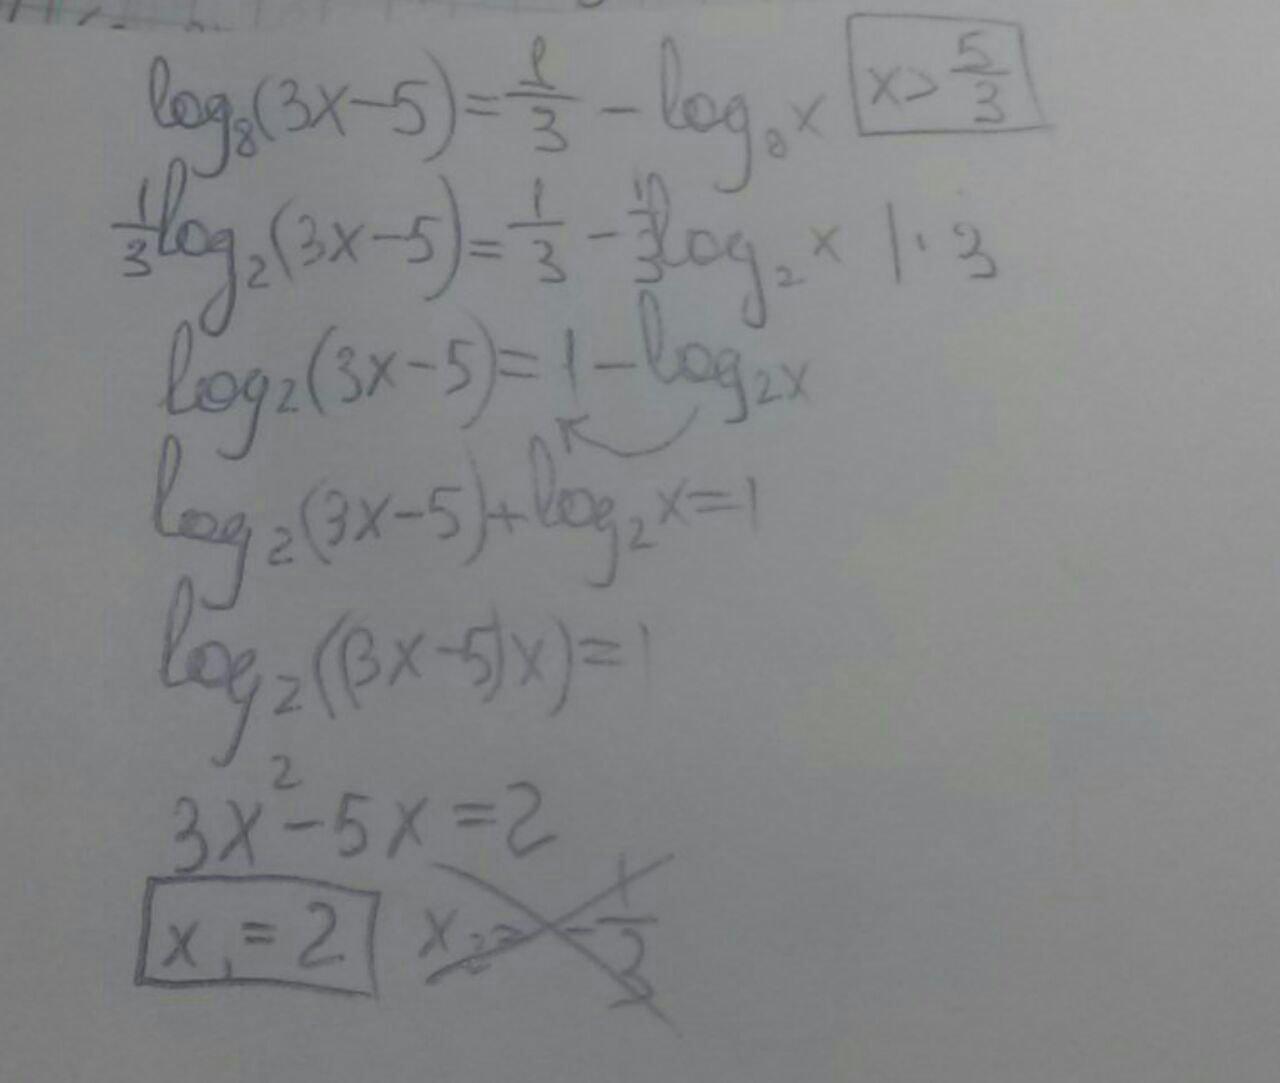 log₈(3x-5)=1/3 - log₈x x>5/3
1/3log₂(3x-5)=1/3-1/3log₂x |·3
log₂(3x-5)=1-log₂x
log₂(3x-5)+log₂x=1
log₂((3x-5)x)=1
3x²-5x=2
x₁=2 x₂=-1/3